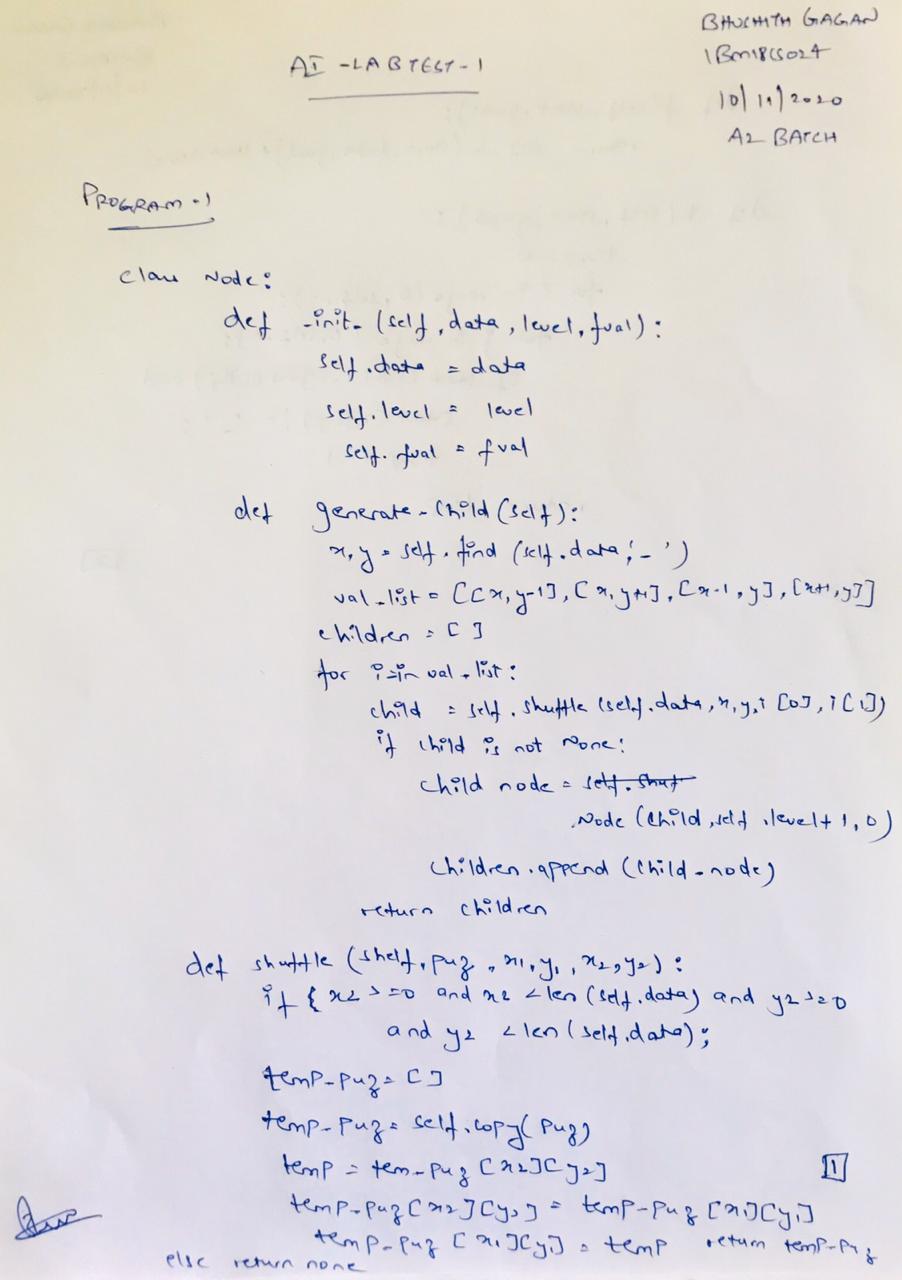 BHUCHITH GAGAN
1BM18CS024
AI - LAB TEST - 1
10/11/2020
A2 BATCH
PROGRAM - 1
class Node:
def _init_ (self, data, level, fval):
self.data = data
self.level = level
self.fval = fval
def generate_child (self):
x, y = self.find (self.data, '_')
val_list = [[x, y-1], [x, y+1], [x-1, y], [x+1, y]]
children = []
for i in val_list:
child = self.shuffle (self.data, x, y, i[0], i[1])
if child is not None:
child node = self.shuf
Node (child, self.level+1, 0)
children.append (child_node)
return children
def shuffle (shelf, puz, x1, y1, x2, y2):
if { x2 >=0 and x2 < len (self.data) and y2 >=0
and y2 < len (self.data);
temp-puz = []
temp-puz = self.copy( puz)
temp = tem-puz [x2][y2]
temp-puz[x2][y2] = temp-puz [x1][y1]
temp-puz [x1][y1] = temp return temp-puz
else return none
1